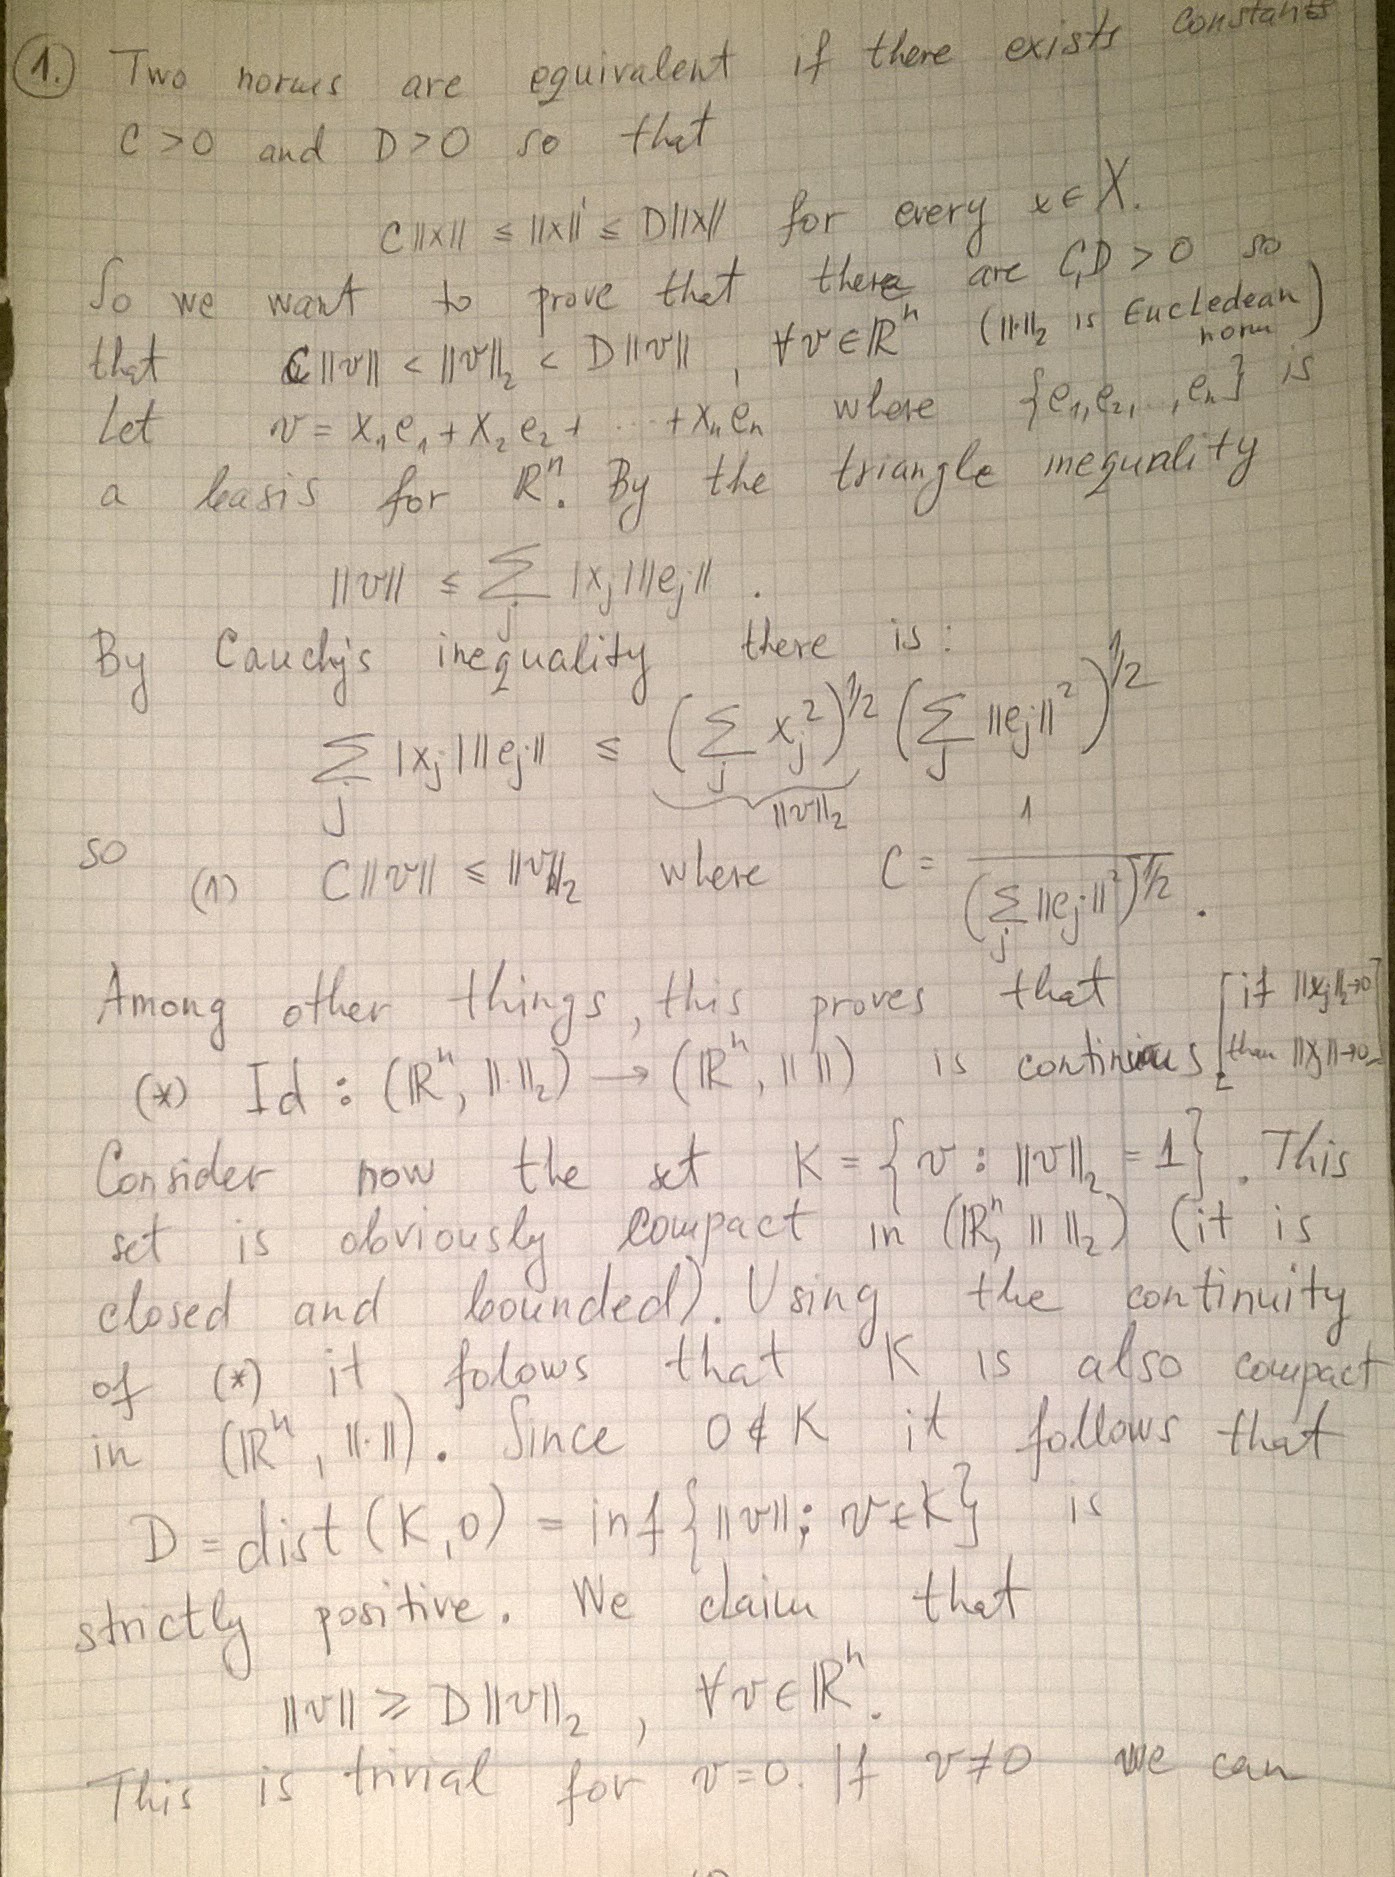 1. Two norms are equivalent if there exists constants
C > 0 and D > 0 so that
C||x|| ≤ ||x||' ≤ D||x|| for every x ∈ X.
So we want to prove that there are C,D > 0 so
that C||v|| < ||v||₂ < D||v||, ∀v∈ℝⁿ (||·||₂ is Eucledean norm)
Let v = x₁e₁ + x₂e₂ + ... + xₙeₙ where {e₁,e₂,..,eₙ} is
a basis for ℝⁿ. By the triangle inequality
||v|| ≤ ∑_j |x_j| ||e_j|| .
By Cauchy's inequality there is:
∑_j |x_j| ||e_j|| ≤ (∑_j x_j²)^1/2 (∑_j ||e_j||²)^1/2
||v||₂
so (1) C||v|| ≤ ||v||₂ where C = 1/(∑_j ||e_j||²)^1/2 .
Among other things, this proves that [if ||x_j||₂→0
(*) Id : (ℝⁿ, ||·||₂) → (ℝⁿ, || ||) is continuous. then ||x_j||→0]
Consider now the set K = {v : ||v||₂ = 1}. This
set is obviously compact in (ℝⁿ, || ||₂) (it is
closed and bounded). Using the continuity
of (*) it folows that K is also compact
in (ℝⁿ, ||·||). Since 0 ∉ K it follows that
D = dist(K,0) = inf{||v||; v∈K} is
strictly positive. We claim that
||v|| ≥ D||v||₂ , ∀v∈ℝⁿ.
This is trivial for v=0. If v≠0 we can